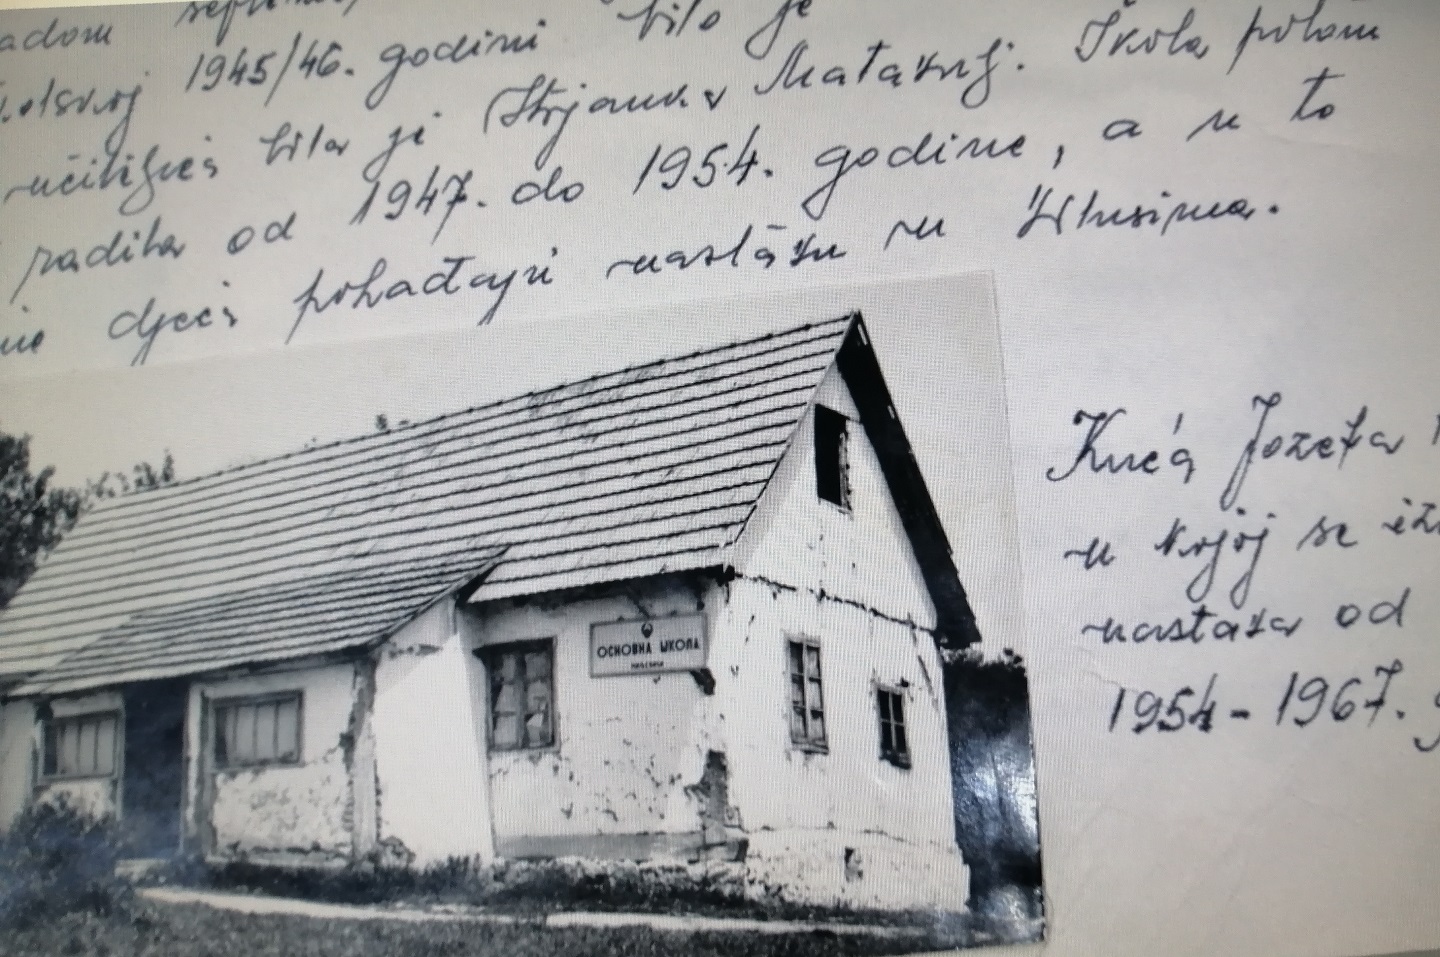 radom
školskoj 1945/46. godini bilo je
učiteljica bila je Stojanka Matavulj. Škola potom
radila od 1947. do 1954. godine, a u to
djeca pohađaju nastavu u
ОСНОВНА ШКОЛА
Kuća Jozefa
u kojoj se
nastava od
1954-1967. g